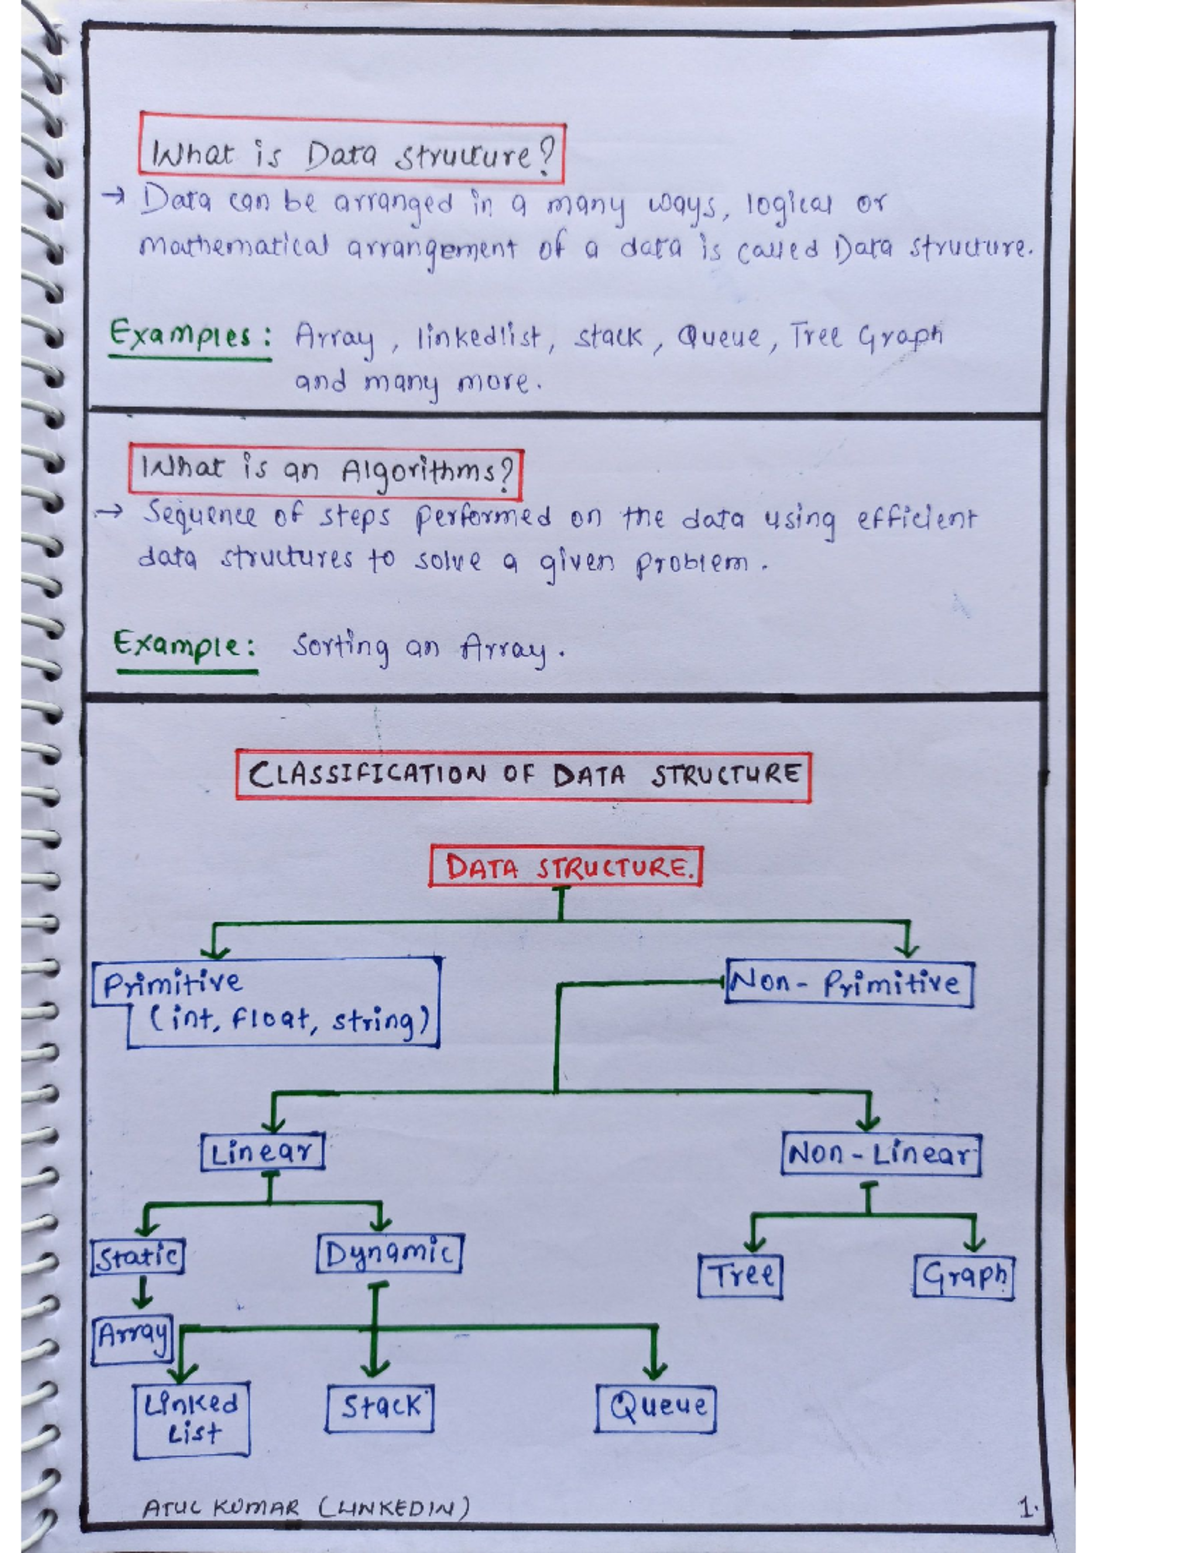 What is Data Structure?
→ Data can be arranged in a many ways, logical or
mathematical arrangement of a data is called Data structure.
Examples: Array, linkedlist, stack, Queue, Tree Graph
and many more.
What is an Algorithms?
→ Sequence of steps performed on the data using efficient
data structures to solve a given problem.
Example: Sorting an Array.
CLASSIFICATION OF DATA STRUCTURE
DATA STRUCTURE.
Primitive
(int, float, string)
Non-Primitive
Linear
Non-Linear
Static
Dynamic
Tree
Graph
Array
Linked
List
Stack
Queue
ATUL KUMAR (LINKEDIN)
1.